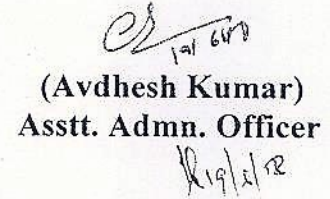 (Avdhesh Kumar)
Asstt. Admn. Officer